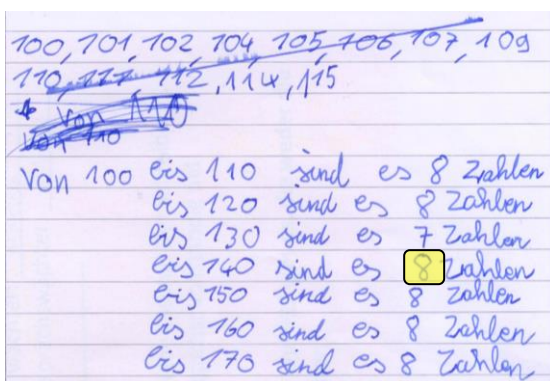 100, 101, 102, 104, 105, 106, 107, 109
110, 111, 112, 114, 115
von 110
von 110
Von 100 bis 110 sind es 8 Zahlen
bis 120 sind es 8 Zahlen
bis 130 sind es 7 Zahlen
bis 140 sind es 8 Zahlen
bis 150 sind es 8 Zahlen
bis 160 sind es 8 Zahlen
bis 170 sind es 8 Zahlen